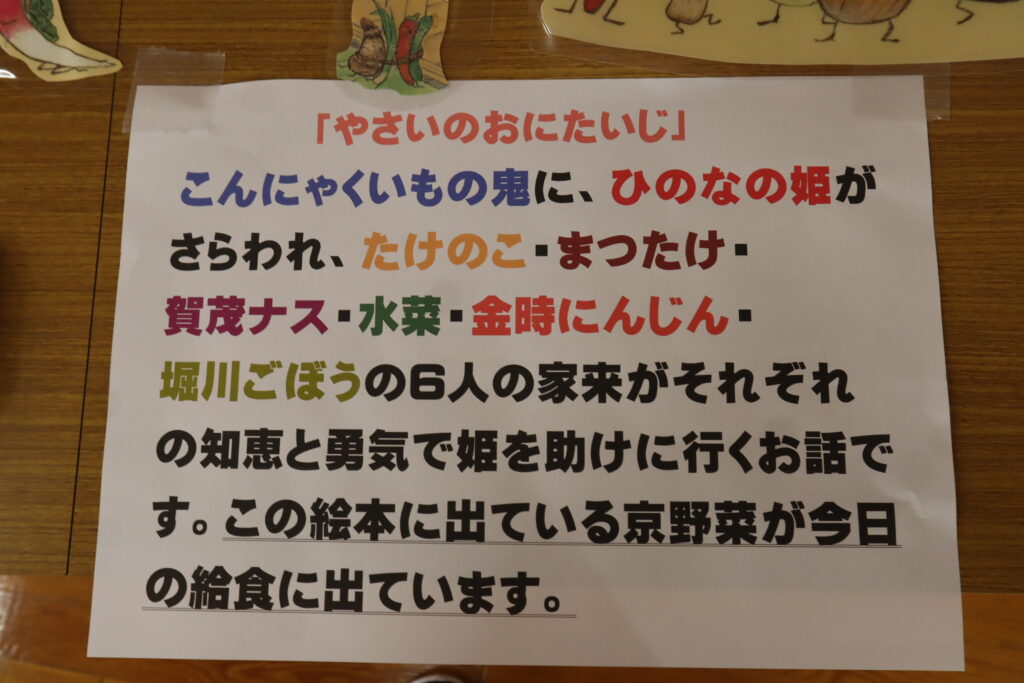 「やさいのおにたいじ」
こんにゃくいもの鬼に、ひのなの姫が
さらわれ、たけのこ・まつたけ・
賀茂ナス・水菜・金時にんじん・
堀川ごぼうの6人の家来がそれぞれ
の知恵と勇気で姫を助けに行くお話で
す。この絵本に出ている京野菜が今日
の給食に出ています。